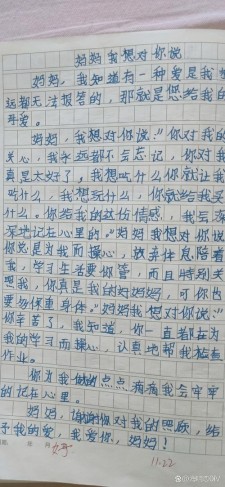 妈妈我想对你说
妈妈，我知道有一种爱是我永
远都无法报答的，那就是您给我的
母爱。
妈妈，我想对你说："你对我的
关心，我永远都不会忘记，你对我
真是太好了。我想吃什么你就让我
吃什么，我想玩什么，你就给我买
什么。你给我的这份情感，我会深
深地记在心里的。"妈妈我想对你说
你总是为我而操心，放弃休息陪着
我，学习生活要你管，而且特别关
照我，你真是我的好妈妈，可你也
要多保重身体。"妈妈我想对你说：
你辛苦了，我知道，你一直都在为
我的学习而操心，认真地帮我检查
作业。
你为我做的点点滴滴我会牢牢
的记在心里。
妈妈，谢谢你对我的照顾，给
予我的爱，我爱你，妈妈！
好
11.22